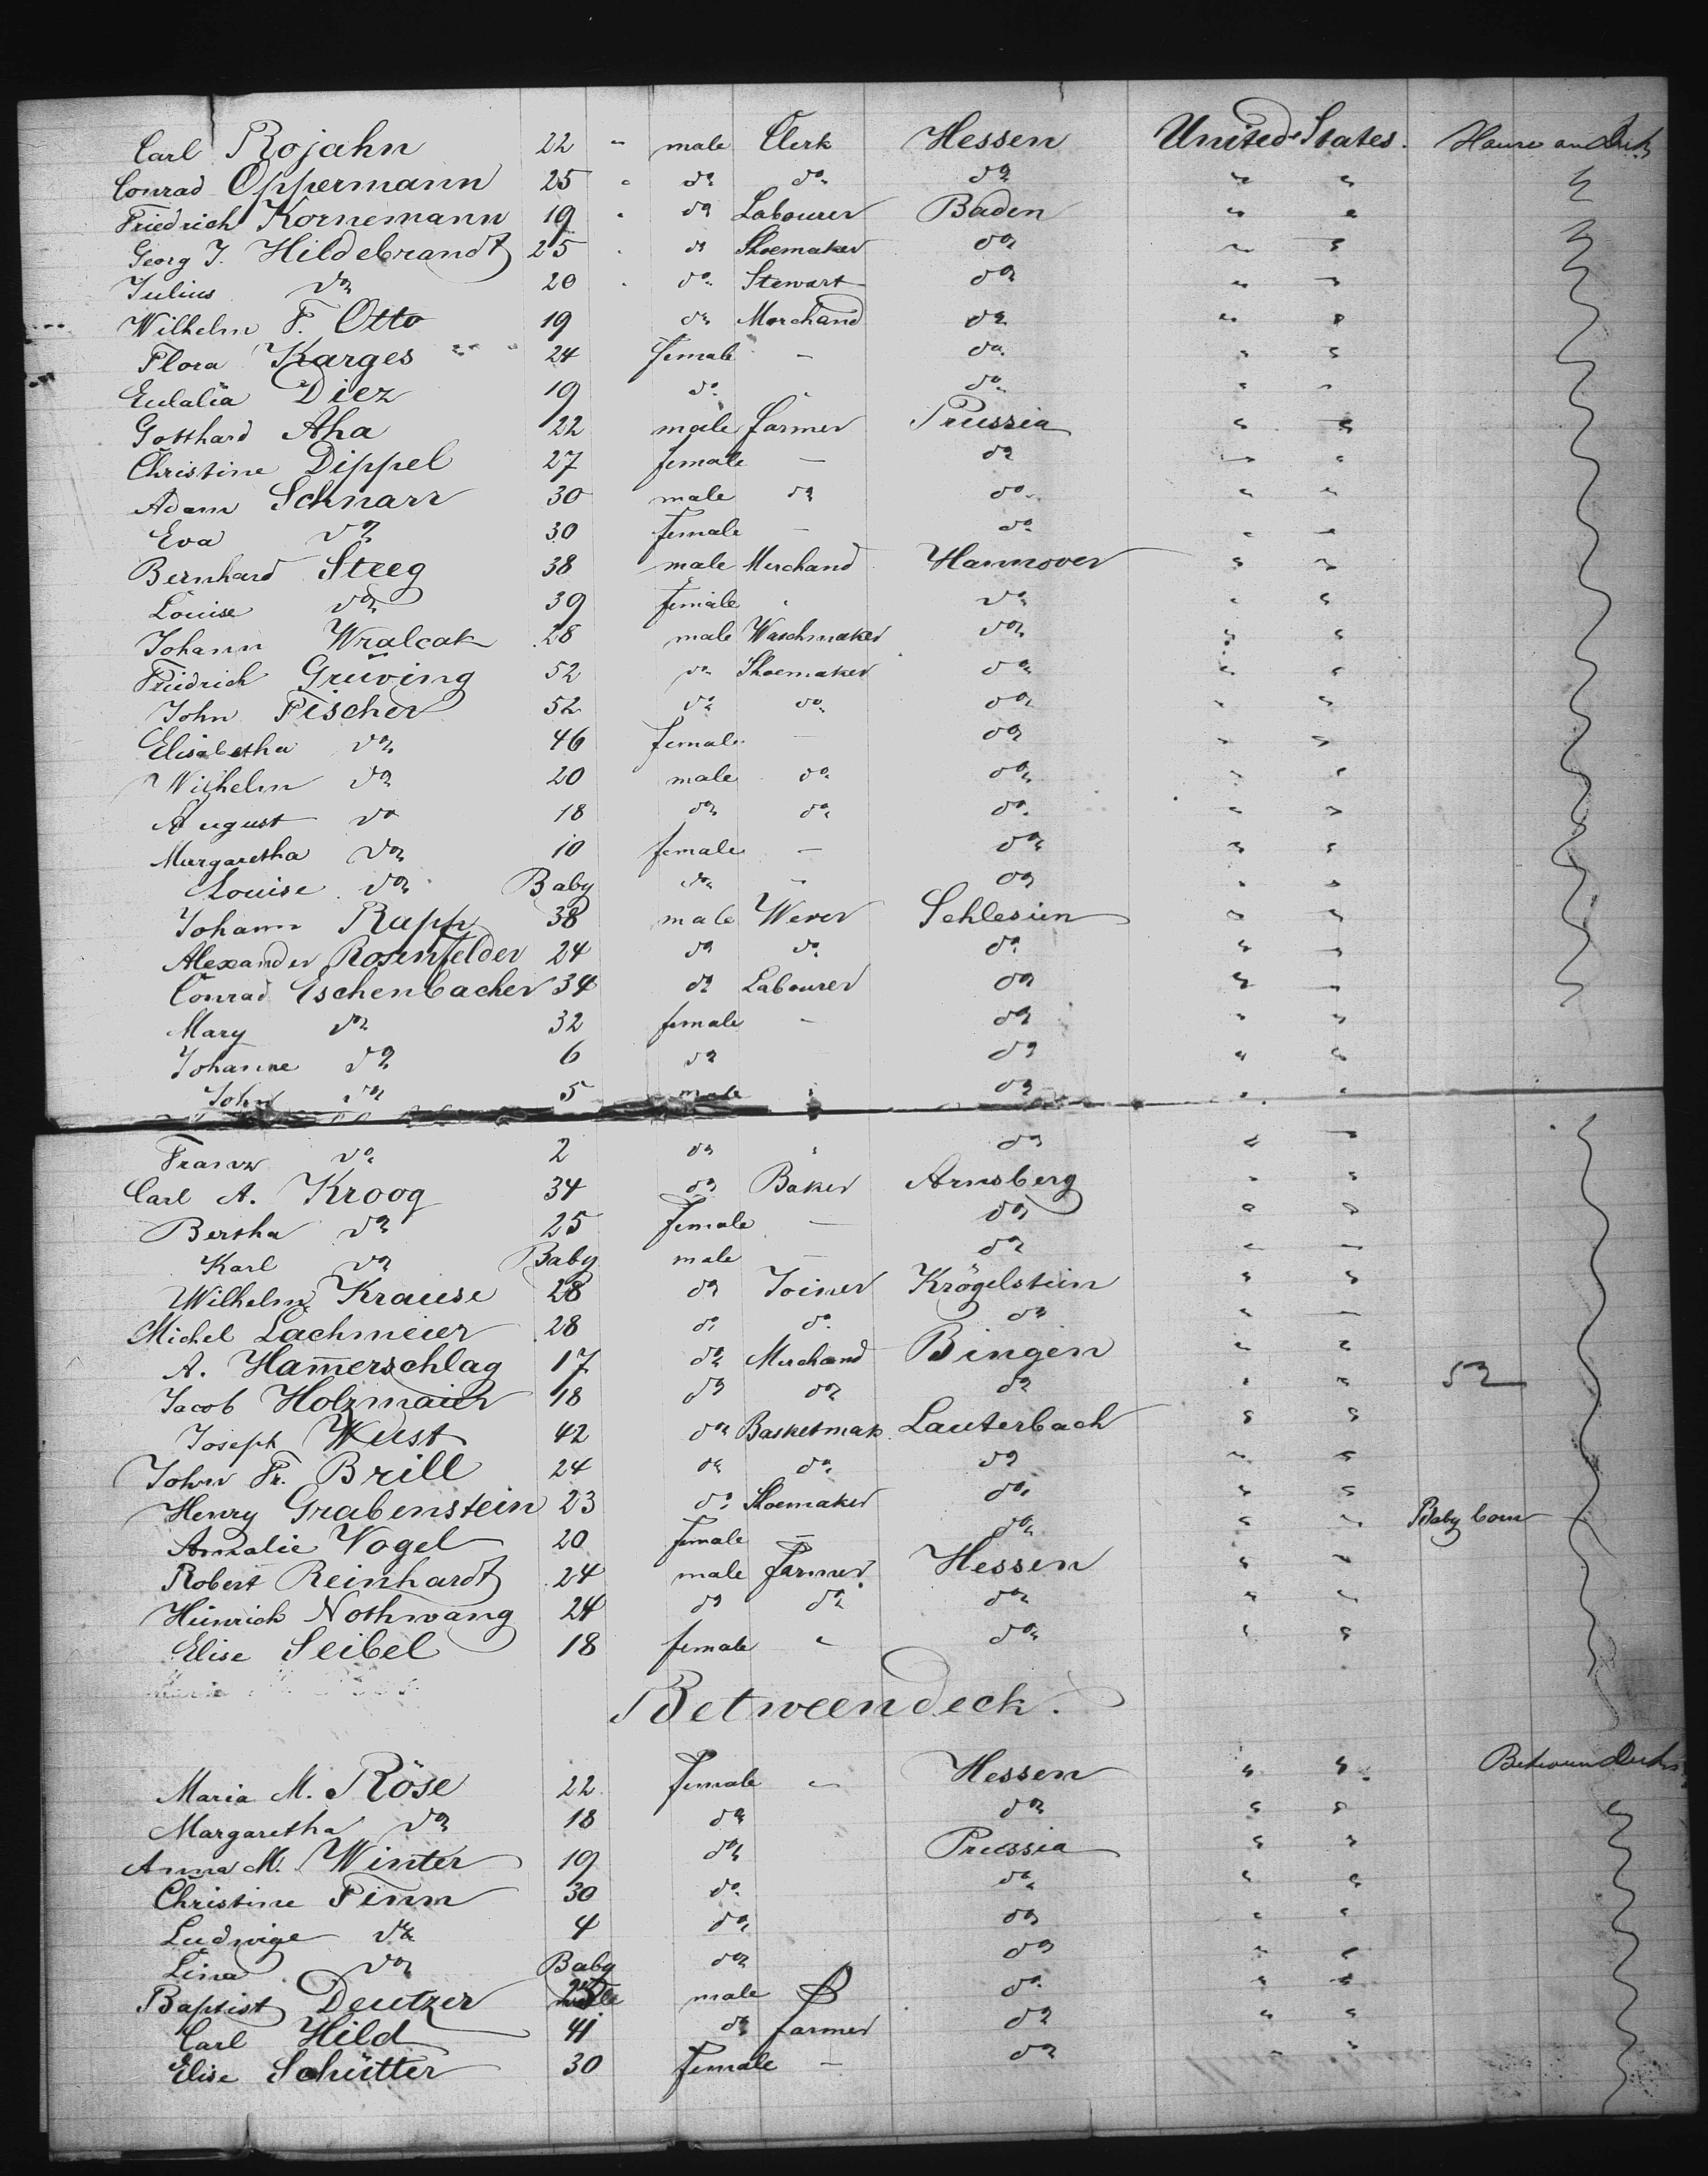 Carl Rojahn 22 " male Clerk Hessen United States. House on Deck
Conrad Oppermann 25 " do do do " "
Friedrich Kornemann 19 " do Labourer Baden " "
Georg J. Hildebrandt 25 " do Shoemaker do " "
Julius do 20 " do Stewart do " "
Wilhelm F. Otto 19 do Merchand do " "
Flora Karges 24 female — do " "
Eulalia Diez 19 do " do " "
Gotthard Aha 22 male farmer Prussia " "
Christine Dippel 27 female — do " "
Adam Schnarr 30 male do do " "
Eva do 30 female — do " "
Bernhard Steeg 38 male Merchand Hannover " "
Louise do 39 female " do " "
Johann Wralcak 28 male Waschmaker do " "
Friedrich Grüving 52 do Shoemaker do " "
John Fischer 52 do do do " "
Elisabetha do 46 female — do " "
Wilhelm do 20 male do do " "
August do 18 do do do " "
Margaretha do 10 female — do " "
Louise do Baby do — do " "
Johann Rapp 38 male Wever Schlesien " "
Alexander Rosenfelder 24 do do do " "
Conrad Eschenbacher 34 do Labourer do " "
Mary do 32 female — do " "
Johanne do 6 do do " "
John do 5 male " do " "
Franz do 2 do " do " "
Carl A. Kroog 34 do Baker Arnsberg " "
Bertha do 25 female — do " "
Karl do Baby male — do " "
Wilhelm Krause 28 do Joiner Krögelstein " "
Michel Lachmeier 28 do do do " "
A. Ham̅erschlag 17 do Merchand Bingen " "
Jacob Holzmaier 18 do do do " " 52
Joseph Wust 42 do Basketmak. Lauterbach " "
John Fr. Brill 24 do do do " "
Henry Grabenstein 23 do Shoemaker do " "
Amalie Vogel 20 female — do " " Baby born
Robert Reinhardt 24 male farmer Hessen " "
Heinrich Nothwang 24 do do do " "
Elise Seibel 18 female " do " "
Betweendeck.
Maria M. Röse 22 female " Hessen " " Betweendeck
Margaretha do 18 do do " "
Anna M. Winter 19 do Prussia " "
Christine Finm 30 do do " "
Ludwige do 4 do do " "
Lina do Baby do do " "
Baptist Deutzer 25 male do " "
Carl Hild 41 do farmer do " "
Elise Schütter 30 female — do " "